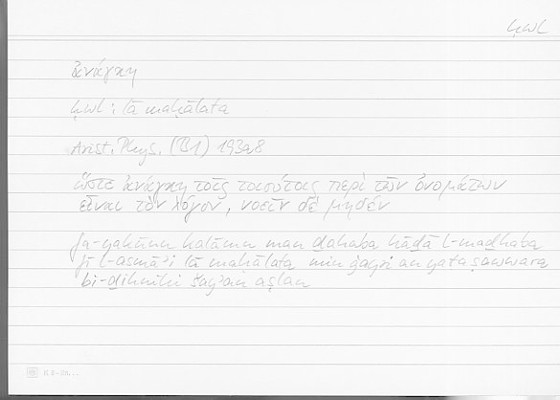 ḥwl
ἀνάγκη
ḥwl: lā maḥālata
Arist. Phys. (B1) 193a8
ὥστε ἀνάγκη τοῖς τοιούτοις περὶ τῶν ὀνομάτων
εἶναι τὸν λόγον, νοεῖν δὲ μηδέν
fa-yakūnu kalāmu man ḏahaba hāḏā l-maḏhaba
fī l-asmāʾi lā maḥālata min ġayri an yataṣawwara
bi-ḏihnihi šayʾan aṣlan